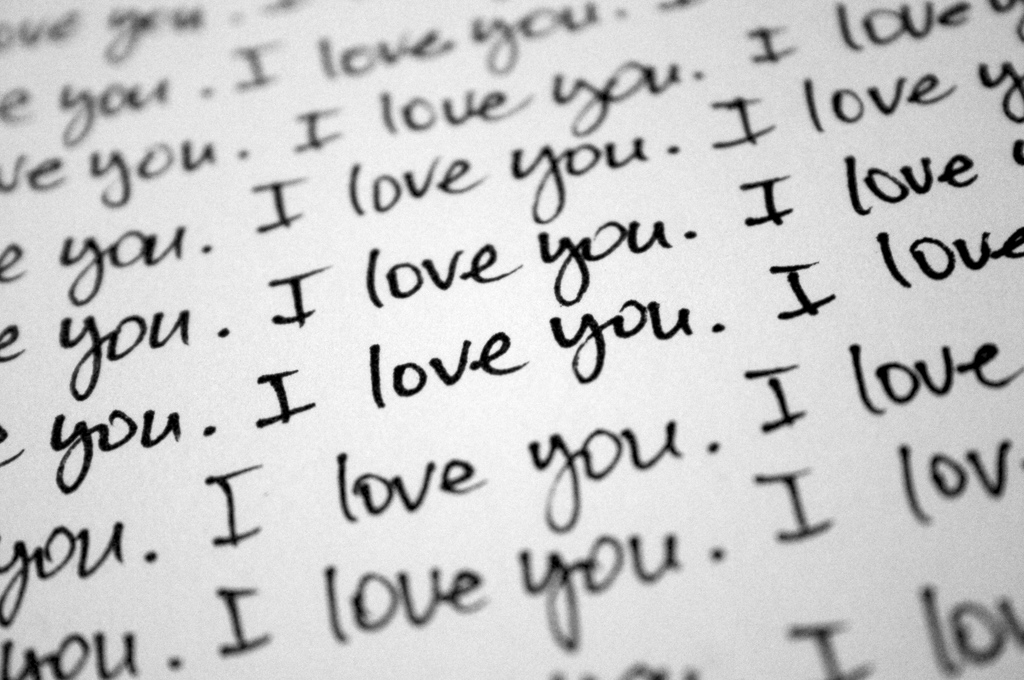 ove you. I
e you. I love you. I
ve you. I love you. I love y
e you. I love you. I love y
e you. I love you. I love y
e you. I love you. I love
you. I love you. I love
you. I love you. I lov
I lov